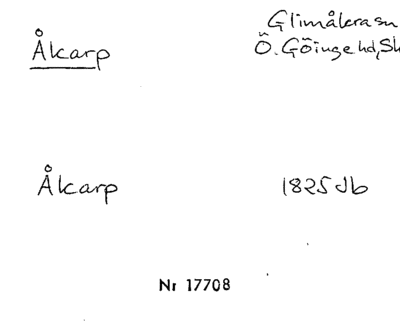 Glimåkra sn
Åkarp Ö. Göinge hd, Sk
Åkarp 1825 Jb
Nr 17708